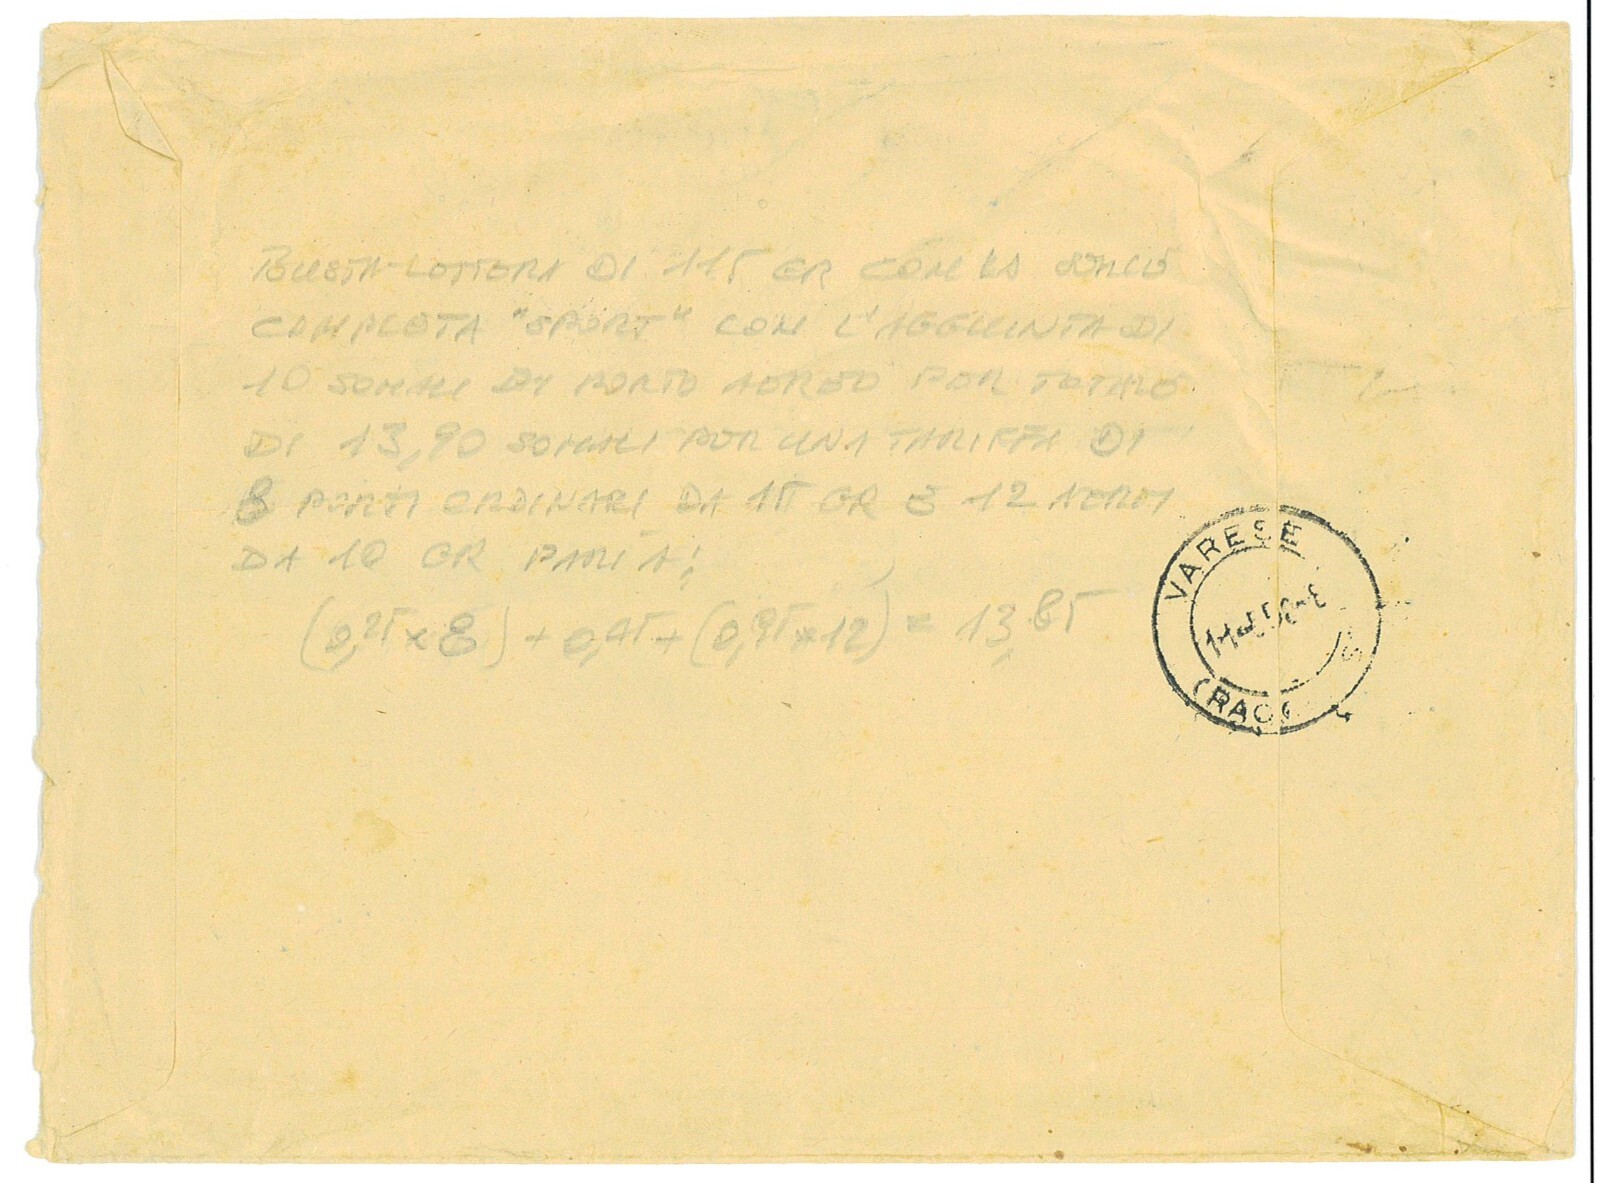 BUSTA-LETTERA DI 115 GR CON LA SERIE
COMPLETA "SPORT" CON L'AGGIUNTA DI
10 SOMALI DI PORTO AEREO PER TOTALE
DI 13,90 SOMALI PER UNA TARIFFA DI
8 PORTI ORDINARI DA 15 GR E 12 AEREI
DA 10 GR PARI A:
(0,25 x 8) + 0,45 + (0,95 x 12) = 13,85
VARESE